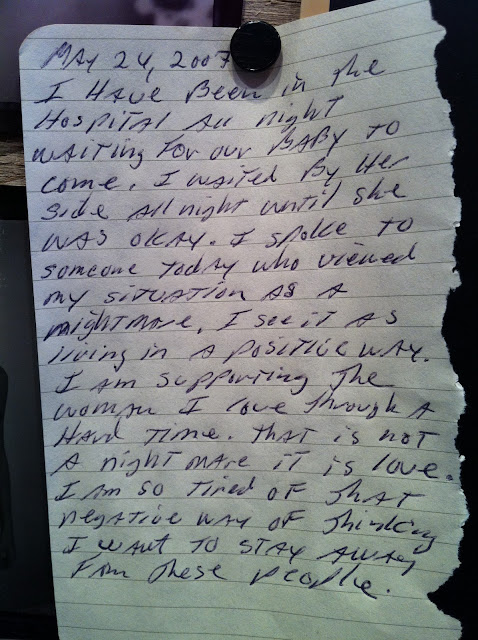 MAY 24, 2007
I HAVE BEEN in the
HOSPITAL ALL night
WAITING FOR OUR BABY TO
COME. I WAITED BY Her
Side All night until she
WAS OKAY. I spoke TO
someone TODAY who viewed
my SITUATION AS A
nightmare. I see it AS
living in A POSITIVE WAY.
I Am supporting The
woman I love through A
HARD TIME. THAT is not
A nightmare it is love.
I Am so Tired of That
negative WAY OF Thinking
I want TO STAY AWAY
From these people.